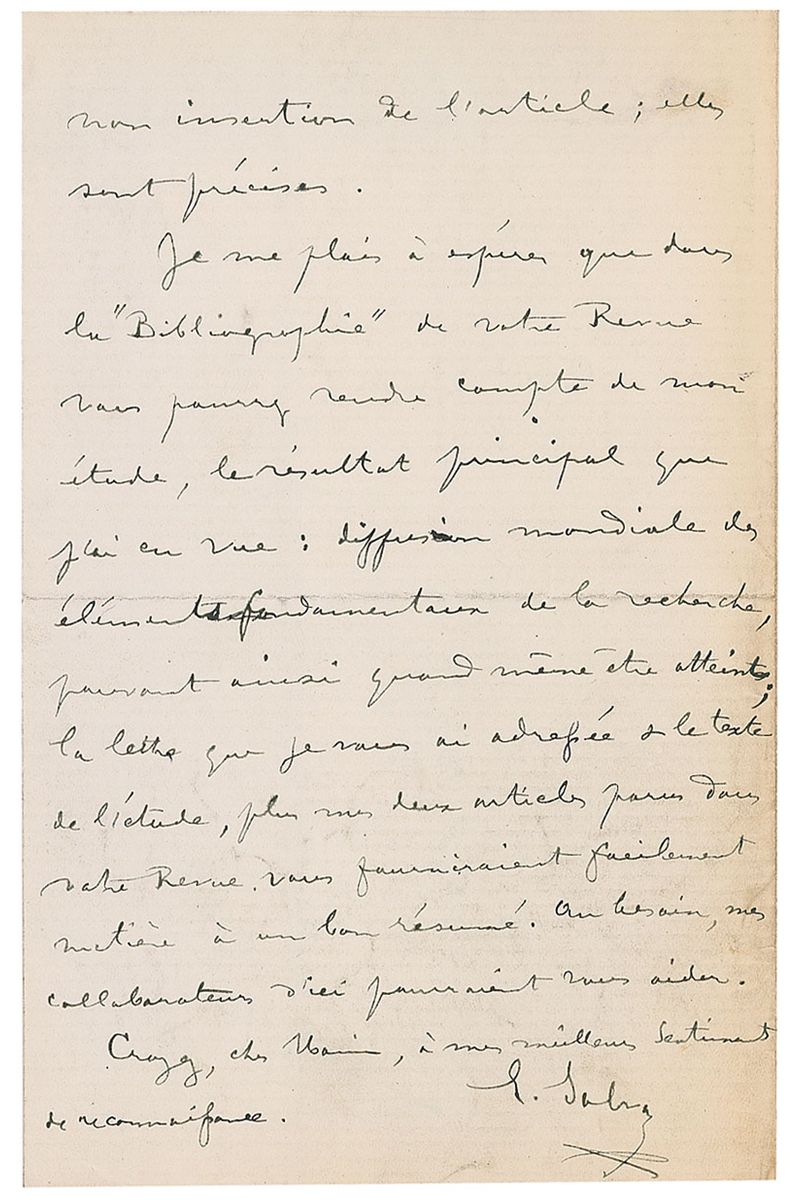 non insertion de l'article ; elles
sont précises .
Je me plais à espérer que dans
la "Bibliographie" de votre Revue
vous pourrez rendre compte de mon
étude, le résultat principal que
j'ai en vue : diffusion mondiale des
éléments fondamentaux de la recherche,
pouvant ainsi quand même être atteint ;
la lettre que je vous ai adressée & le texte
de l'étude, plus mes deux articles parus dans
votre Revue, vous fourniraient facilement
matière à un bon résumé. Au besoin, mes
collaborateurs d'ici pourraient vous aider.
Croyez, cher, à mes meilleurs sentiments
de reconnaissance .